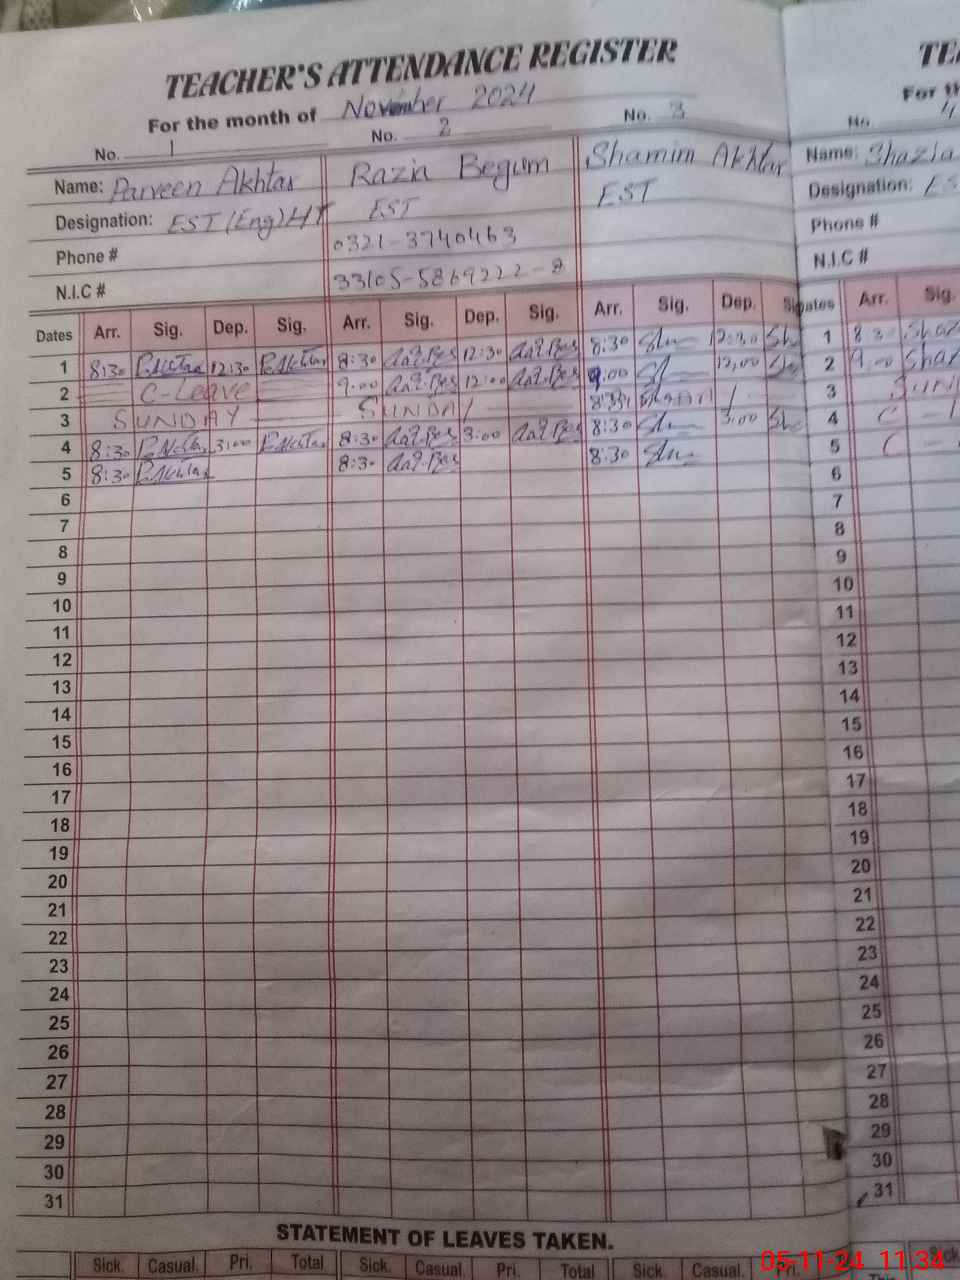 TEACHER'S ATTENDANCE REGISTER
For the month of November 2024
No. 1 No. 2 No. 3
Name: Parveen Akhtar Razia Begum Shamim Akhtar
Designation: EST (Eng) HT EST EST
Phone # 0321-3740463
N.I.C # 33105-5869222-8
Dates Arr. Sig. Dep. Sig. Arr. Sig. Dep. Sig. Arr. Sig. Dep. Sig.
1 8:30 P.Akhtar 12:30 P.Akhtar 8:30 12:30 8:30 12:30
2 C-Leave 9:00 12:00 9:00 12:00
3 SUNDAY SUNDAY
4 8:30 P.Akhtar 3:00 P.Akhtar 8:30 3:00 8:30 3:00
5 8:30 P.Akhtar 8:30 8:30
6
7
8
9
10
11
12
13
14
15
16
17
18
19
20
21
22
23
24
25
26
27
28
29
30
31
STATEMENT OF LEAVES TAKEN.
Sick. Casual. Pri. Total Sick. Casual. Pri. Total Sick. Casual. Pri.
For th
No. 4
Name: Shazia
Designation: ES
Phone #
N.I.C #
Dates Arr. Sig.
1 8:30 Shaz
2 9:00 Shaz
3 SUN
4 C -
5 C -
6
7
8
9
10
11
12
13
14
15
16
17
18
19
20
21
22
23
24
25
26
27
28
29
30
31
Sick.
05-11-24 11:34